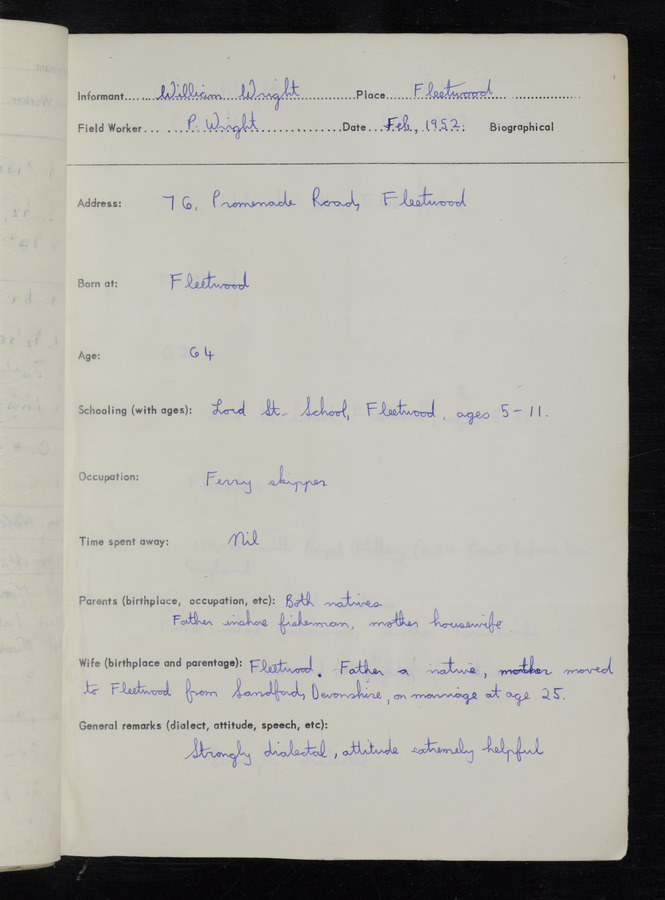 Informant William Wright Place Fleetwood
Field Worker P. Wright Date Feb, 1952. Biographical
Address: 76, Promenade Road, Fleetwood
Born at: Fleetwood
Age: 64
Schooling (with ages): Lord St. School, Fleetwood, ages 5-11.
Occupation: Ferry skipper
Time spent away: Nil
Parents (birthplace, occupation, etc): Both natives
Father inshore fisherman, mother housewife
Wife (birthplace and parentage): Fleetwood. Father a native, mother moved
to Fleetwood from Sandford, Devonshire, on marriage at age 25.
General remarks (dialect, attitude, speech, etc):
Strongly dialectal, attitude extremely helpful